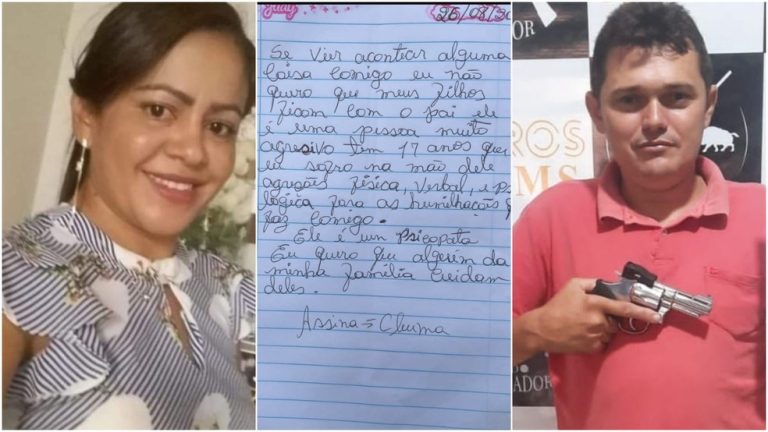 25/08/20
Se vier acontecer alguma
coisa comigo eu não
quero que meus filhos
ficam com o pai ele
é uma pessoa muito
agresivo tem 17 anos que
eu sofro na mão dele
agreções física, verbal, e ps
logica fora as humilhações q
faz comigo.
Ele é um Psicopata
Eu quero que alguem da
minha família cuidam
deles.
Assina =
ADOR
ROS
MS
ADOR